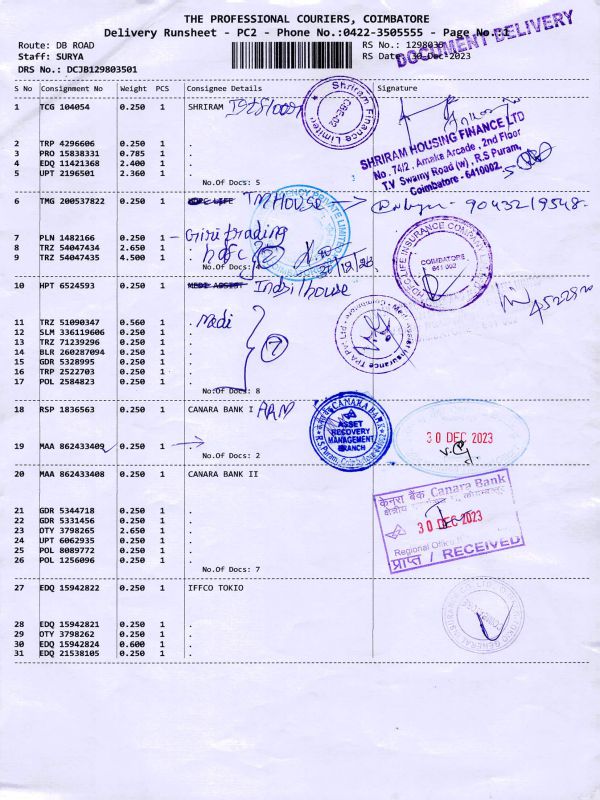 THE PROFESSIONAL COURIERS, COIMBATORE
Delivery Runsheet - PC2 - Phone No.:0422-3505555 - Page No.:1
DOCUMENT DELIVERY
Route: DB ROAD
RS No.: 1298035
Staff: SURYA
RS Date: 30-Dec-2023
DRS No.: DCJB129803501
S No Consignment No Weight PCS Consignee Details Signature
1 TCG 104054 0.250 1 SHRIRAM
Shriram Finance Limited
CBE-02
2 TRP 4296606 0.250 1 .
3 PRO 15838331 0.785 1 .
4 EDQ 11421368 2.400 1 .
5 UPT 2196501 2.360 1 .
No.Of Docs: 5
SHRIRAM HOUSING FINANCE LTD
No. 74/2, Amaka Arcade, 2nd Floor
T.V Swamy Road (w), R.S Puram,
Coimbatore - 641002.
6 TMG 200537822 0.250 1 TM House
9043219548-
7 PLN 1482166 0.250 1 - Giri trading
8 TRZ 54047434 2.650 1 . hdfc
9 TRZ 54047435 4.500 1 . 2
No.Of Docs: 4
30/12/23
HDFC LIFE INSURANCE COMPANY L
COIMBATORE
641 002
10 HPT 6524593 0.250 1 MEDI ASSIST Indsil house
11 TRZ 51090347 0.560 1 . Medi
12 SLM 336119606 0.250 1 .
13 TRZ 71239296 0.250 1 .
14 BLR 260287094 0.250 1 . 7
15 GDR 5328995 0.250 1 .
16 TRP 2522703 0.250 1 .
17 POL 2584823 0.250 1 .
No.Of Docs: 8
Medi Assist Insurance TPA Pvt Ltd - Coimbatore
18 RSP 1836563 0.250 1 CANARA BANK I ARM
19 MAA 862433409 0.250 1 .
No.Of Docs: 2
CANARA BANK
ASSET
RECOVERY
MANAGEMENT
BRANCH
R.S Puram, Coimbatore 641002
30 DEC 2023
20 MAA 862433408 0.250 1 CANARA BANK II
21 GDR 5344718 0.250 1 .
22 GDR 5331456 0.250 1 .
23 DTY 3798265 2.650 1 .
24 UPT 6062935 0.250 1 .
25 POL 8089772 0.250 1 .
26 POL 1256096 0.250 1 .
No.Of Docs: 7
केनरा बैंक Canara Bank
30 DEC 2023
Regional Office
प्राप्त / RECEIVED
27 EDQ 15942822 0.250 1 IFFCO TOKIO
28 EDQ 15942821 0.250 1 .
29 DTY 3798262 0.250 1 .
30 EDQ 15942824 0.600 1 .
31 EDQ 21538105 0.250 1 .